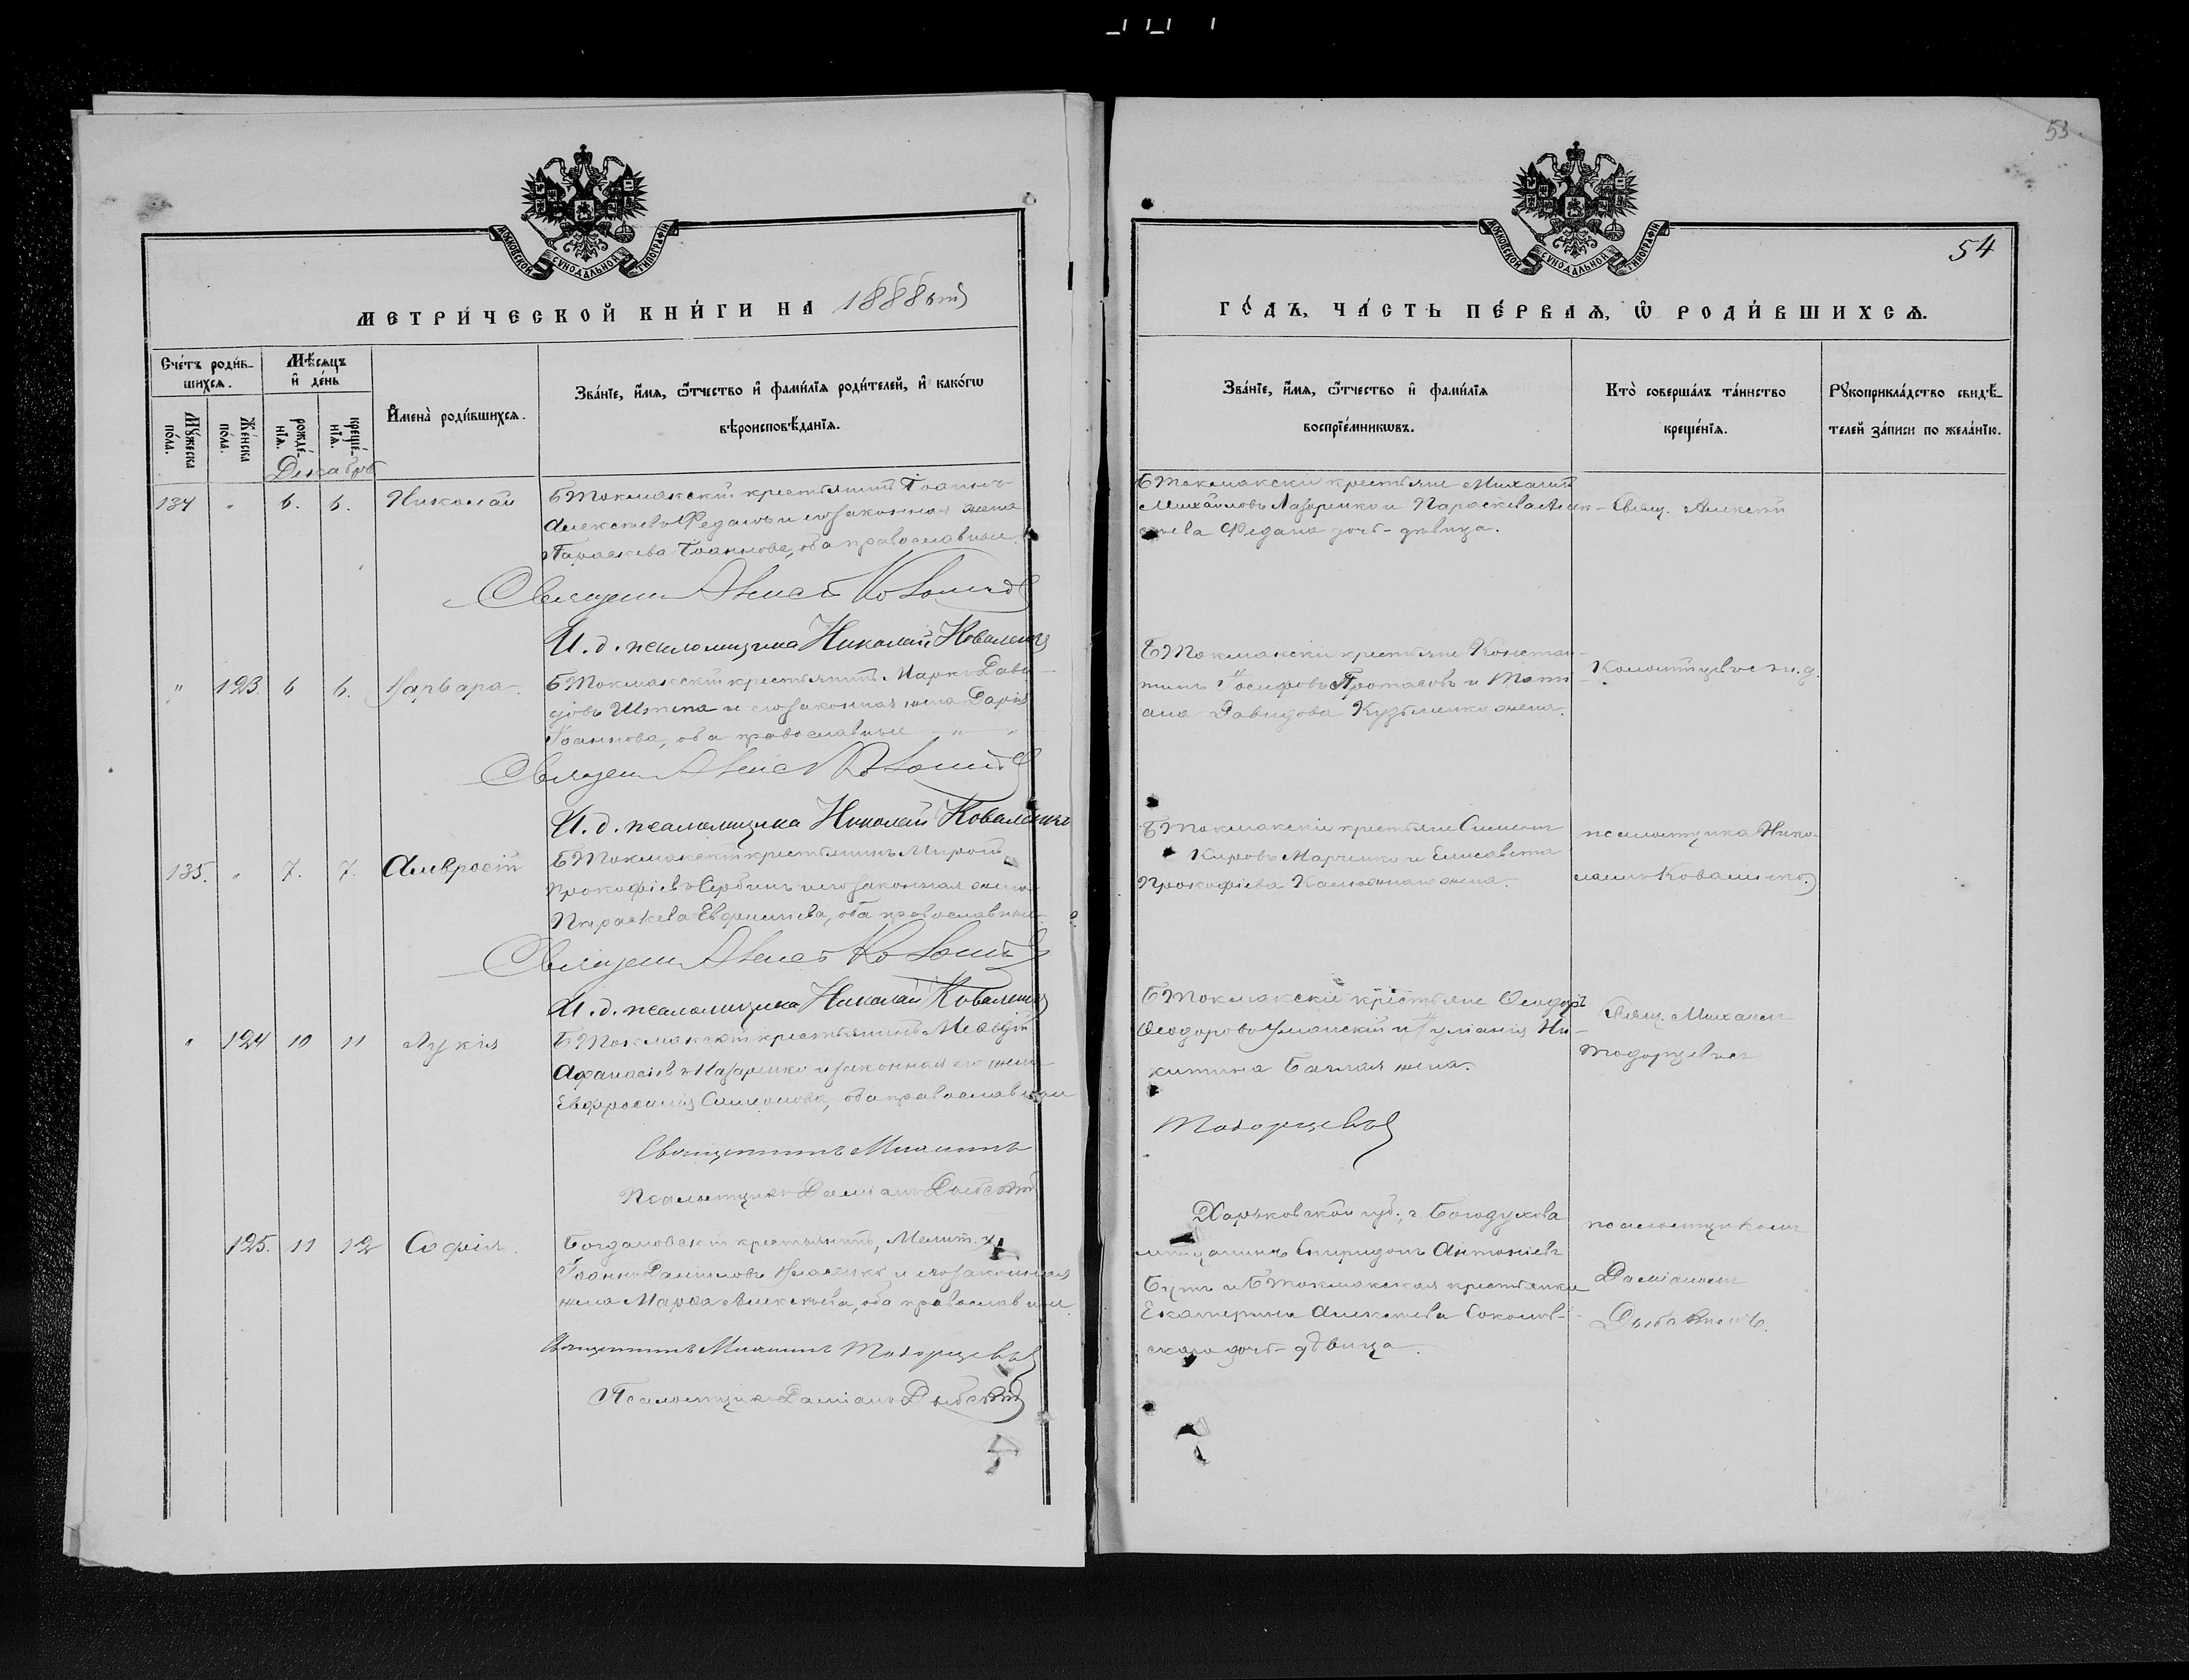 МОСКОВСКОЙ СѴНОДАЛЬНОЙ ТИПОГРАФІИ
МЕТРИ́ЧЕСКОЙ КНИ́ГИ НА 1888 ой
Сче́тъ роди́в-
шихся.
Мѣ́сяцъ
и҆ де́нь
Мꙋ́жеска
по́ла.
Же́нска
по́ла.
рожде́-
нїѧ.
креще́-
нїѧ.
И҆мена̀ роди́вшихсѧ.
Зва́нїе, и҆́мѧ, ѻ҆́тчество и҆ фами́лїѧ роди́телей, и҆ како́гѡ
вѣроисповѣ́данїѧ.
Декабрь
134 " 6. 6. Николай
БТокмакскій крестьянинъ Іоаннъ
Алексіевъ Федань и его законная жена
Параскева Іоаннова, оба православные
Священ Алексѣ
И. д. псаломщика Николай Коваленко
" 123. 6 6. Варвара
БТокмакскій крестьянинъ Марко Дави-
довъ Шпепа и его законная жена Дарія
Іоаннова, оба православные
Священ Алекс
И. д. псаломщика Николай Коваленко
135. " 7. 7. Амвросій
БТокмакскій крестьянинъ Миронъ
Прокофіевъ Сербинъ и его законная жена
Параскева Евфиміева, оба православные
Священ Алексѣ
И. д. псаломщика Николай Коваленко
" 124 10 11 Лукія
БТокмакскій крестьянинъ
Афанасіевъ Назаренко и законная его жена
Евфросинія Симеонова, оба православные
Священникъ Михаилъ
Псаломщикъ Даміанъ
125. 11 12 София
Богдановскій крестьянинъ, Мелит. у.
Іоаннъ Даніиловъ и его законная
жена Марѳа Алексѣева, оба православные
Священникъ Михаилъ Тодорцевъ
Псаломщикъ Даміанъ
53
МОСКОВСКОЙ СѴНОДАЛЬНОЙ ТИПОГРАФІИ
54
ГО́ДЪ, ЧА́СТЬ ПЕ́РВАѦ, Ѡ҆ РОДИ́ВШИХСѦ.
Зва́нїе, и҆́мѧ, ѻ҆́тчество и҆ фами́лїѧ
воспрїе́мникѡвъ.
Кто̀ соверша́лъ та́инство
креще́нїѧ.
Рꙋкоприкла́дство свидѣ́-
телей за́писи по жела́нїю.
БТокмакскіе крестьяне Михаилъ
Михайловъ Лазаренко и Параскева Алек-
сѣева Федана дочь-дѣвица.
Свящ. Алексѣй
БТокмакскіе крестьяне Констан-
тинъ Іосифовъ Протасовъ и Тати-
ана Давидова Кузьменко жена.
и.д.
БТокмакскіе крестьяне Симеонъ
Кировъ Марченко и Елисавета
Прокофіева жена.
псаломщика Нико-
лаемъ Коваленко
БТокмакскіе крестьяне Ѳеодоръ
Ѳеодоровъ Уманскій и Іуліанія Ни-
китина жена.
Свящ. Михаилъ
Тодорцевъ
Тодорцевъ
Харьковской губ., г. Богодухова
мѣщанинъ Спиридонъ Антоніевъ
Бутъ и БТокмакская крестьянка
Екатерина Алексѣева Соколов-
скаго дочь-дѣвица.
псаломщикомъ
Даміаномъ